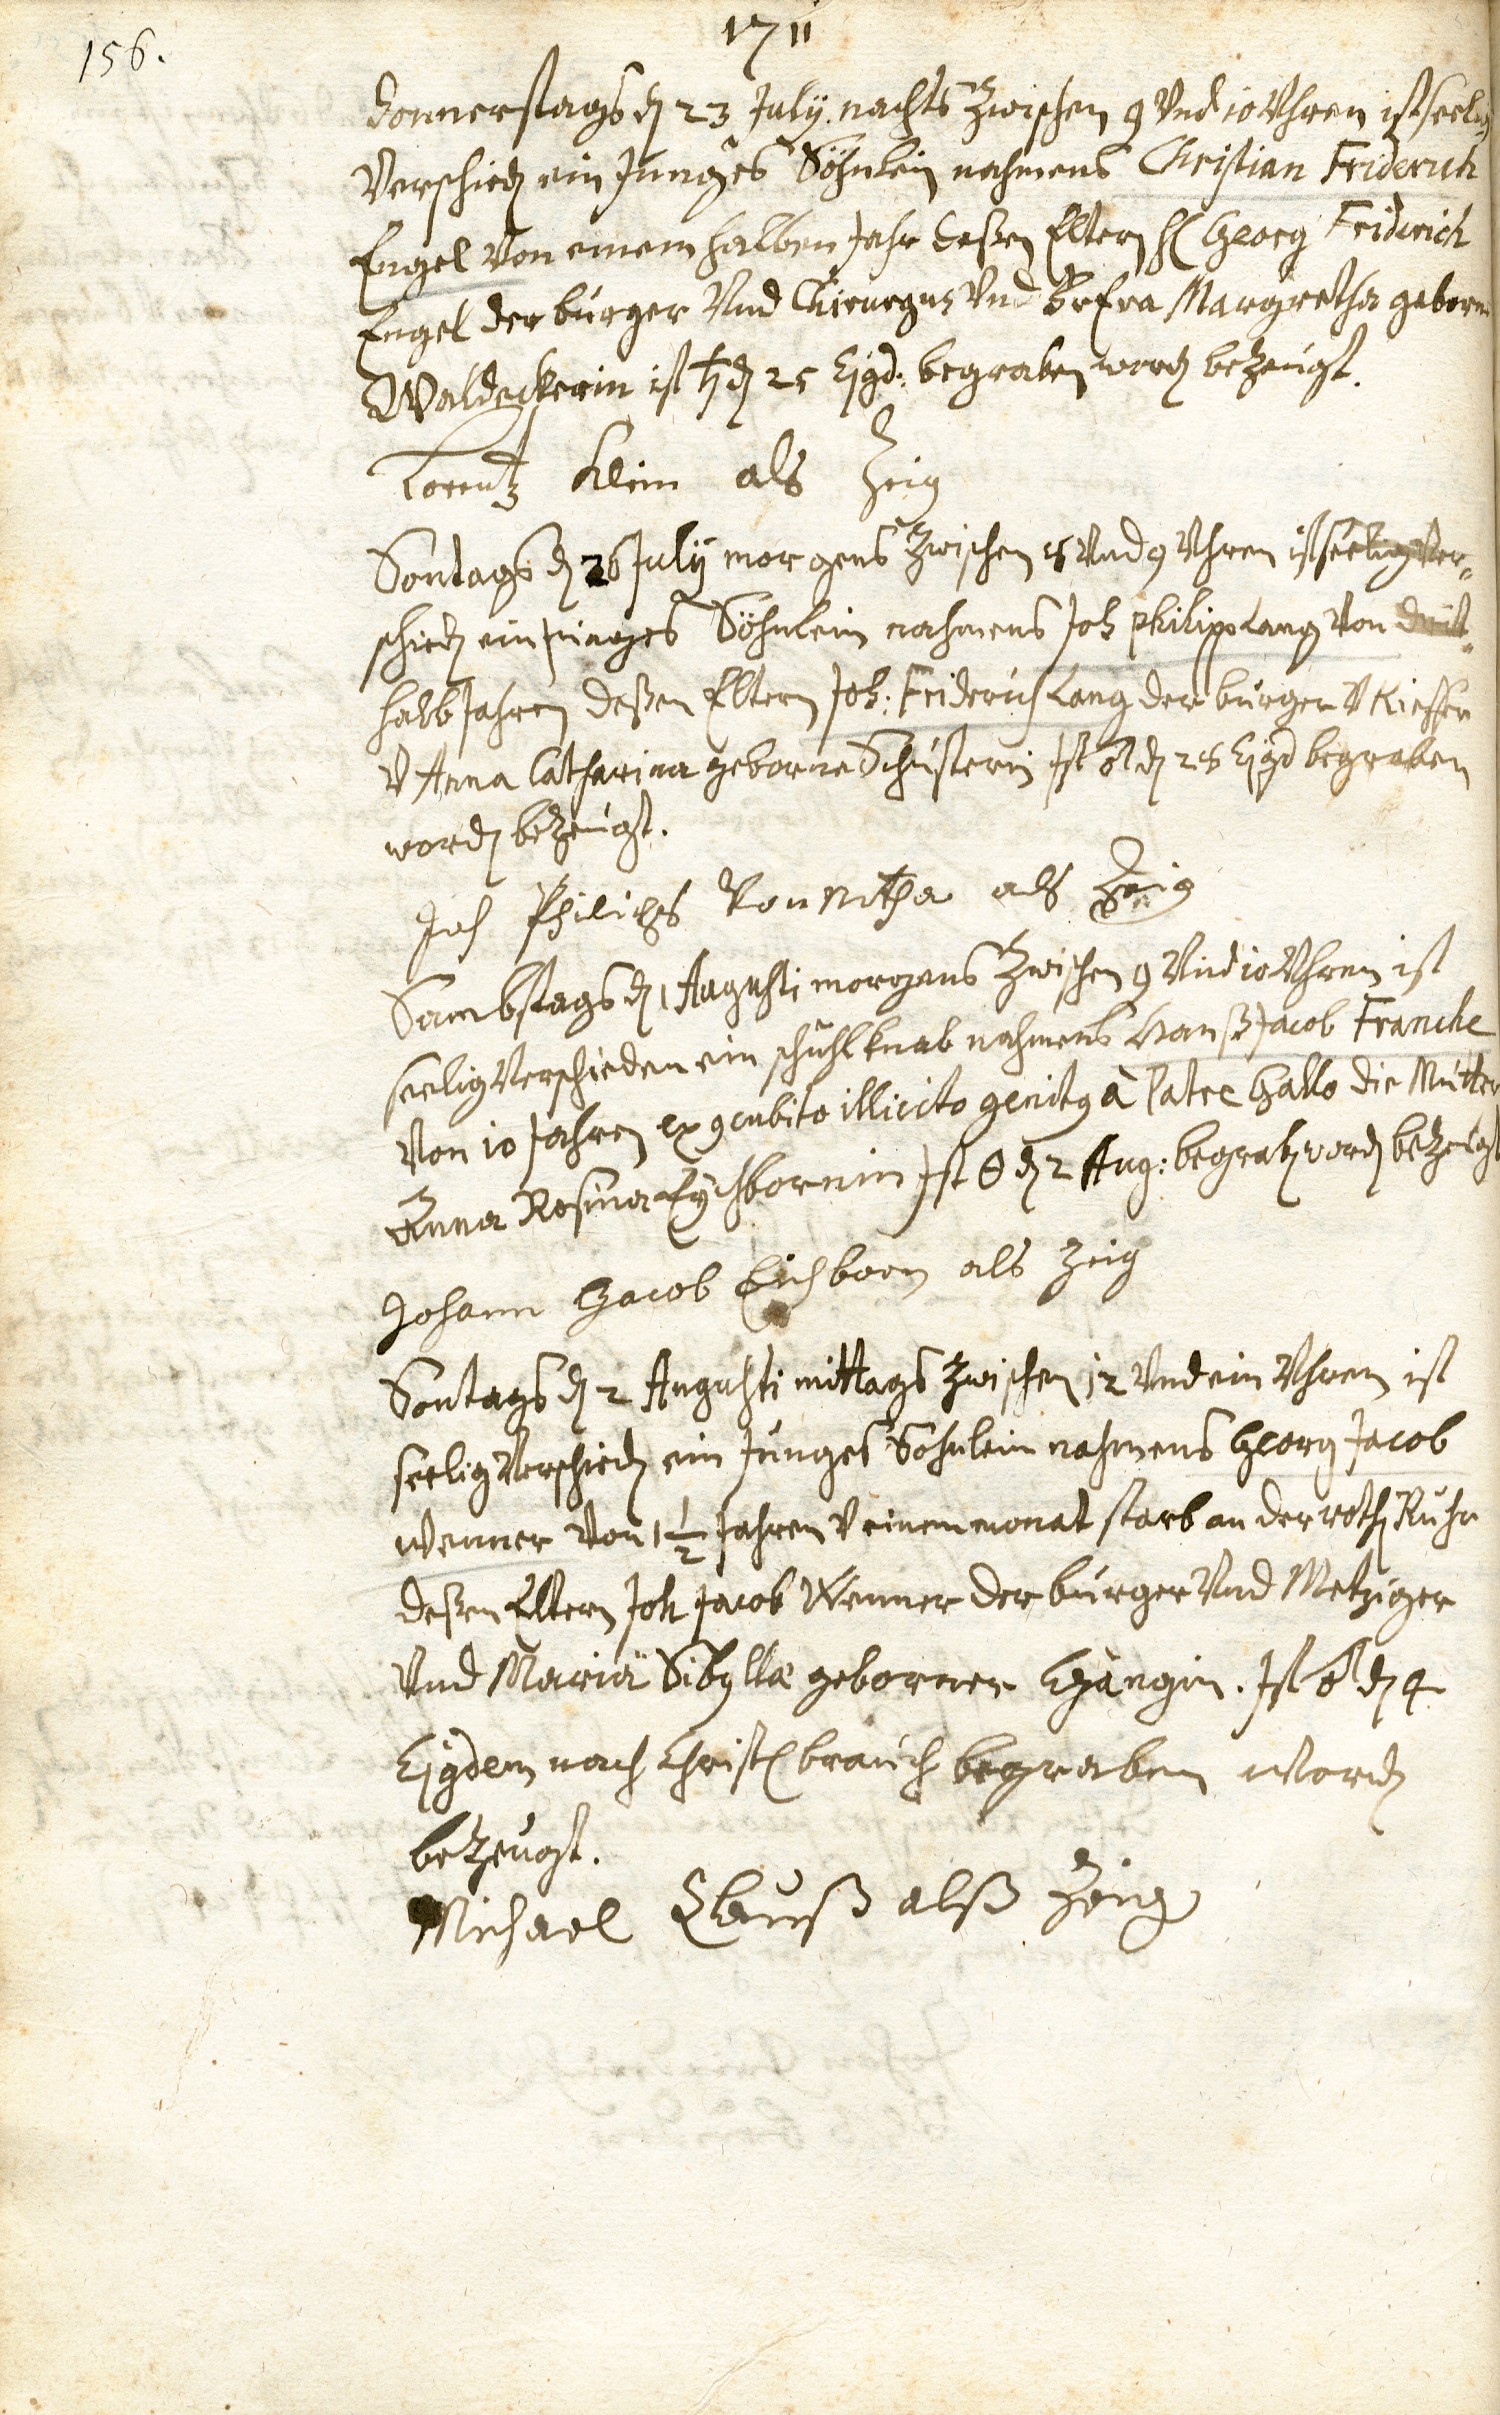 1711
156.
Donnerstags d 23 July. nachts Zwischen 9 Vnd 10 Vhren ist seelig
Verschied ein Junges Söhnlein nahmens Christian Friderich
Engel Von einem halben Jahr deßen Eltern H Georg Friderich
Engel der burger Vnd Chirurgus Vnd Fr Eva Margretha geborne
Waldeckerin ist ♄ d 25 Ejgd: begraben word bezeugt.
Lorentz Klein als Zeig
Sontags d 26 July morgens Zwischen 8 Vnd 9 Vhren ist seelig Ver=
schied ein junges Söhnlein nahmens Joh philipps Lang Von dritt=
halb Jahren deßen Eltern Joh: Friderich Lang der burger V Kieffer
V Anna Catharina geborne Schusterin Ist d 28 Ejgd begraben
word bezeugt.
Joh Philichs als Zeig
Sambstags d 1 Augusti morgens Zwischen 9 Vnd 10 Vhren ist
seelig Verschieden ein schuhlknab nahmens Hanß Jacob Francke
Von 10 Jahren ex 9cubito illicito genitg à Patre Gallo die Mutter
Anna Rosina Eychbornin Ist d 2 Aug: begrab word bezeugt
Johann Jacob Eichborn als Zeig
Sontags d 2 Augusti mittags Zwischen 12 Vnd ein Vhren ist
seelig Verschied ein Junges Söhnlein nahmens Georg Jacob
Wenner Von 1 1/2 Jahren V einem monat starb an der roth Ruhr
deßen Eltern Joh Jacob Wenner der burger Vnd Metziger
Vnd Mariä Sibyllæ geborner Gängin. Ist ♂ d 4
Ejgdem nach Christl brauch begraben word
bezeugt.
Michael Clauß alß Zeig